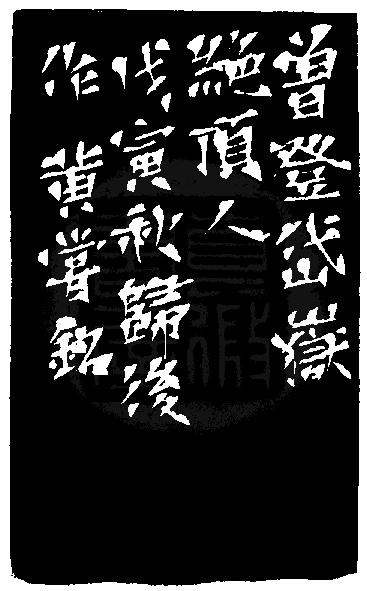 曾登岱嶽
絕頂人
戊寅秋歸後
作 黃嘗銘